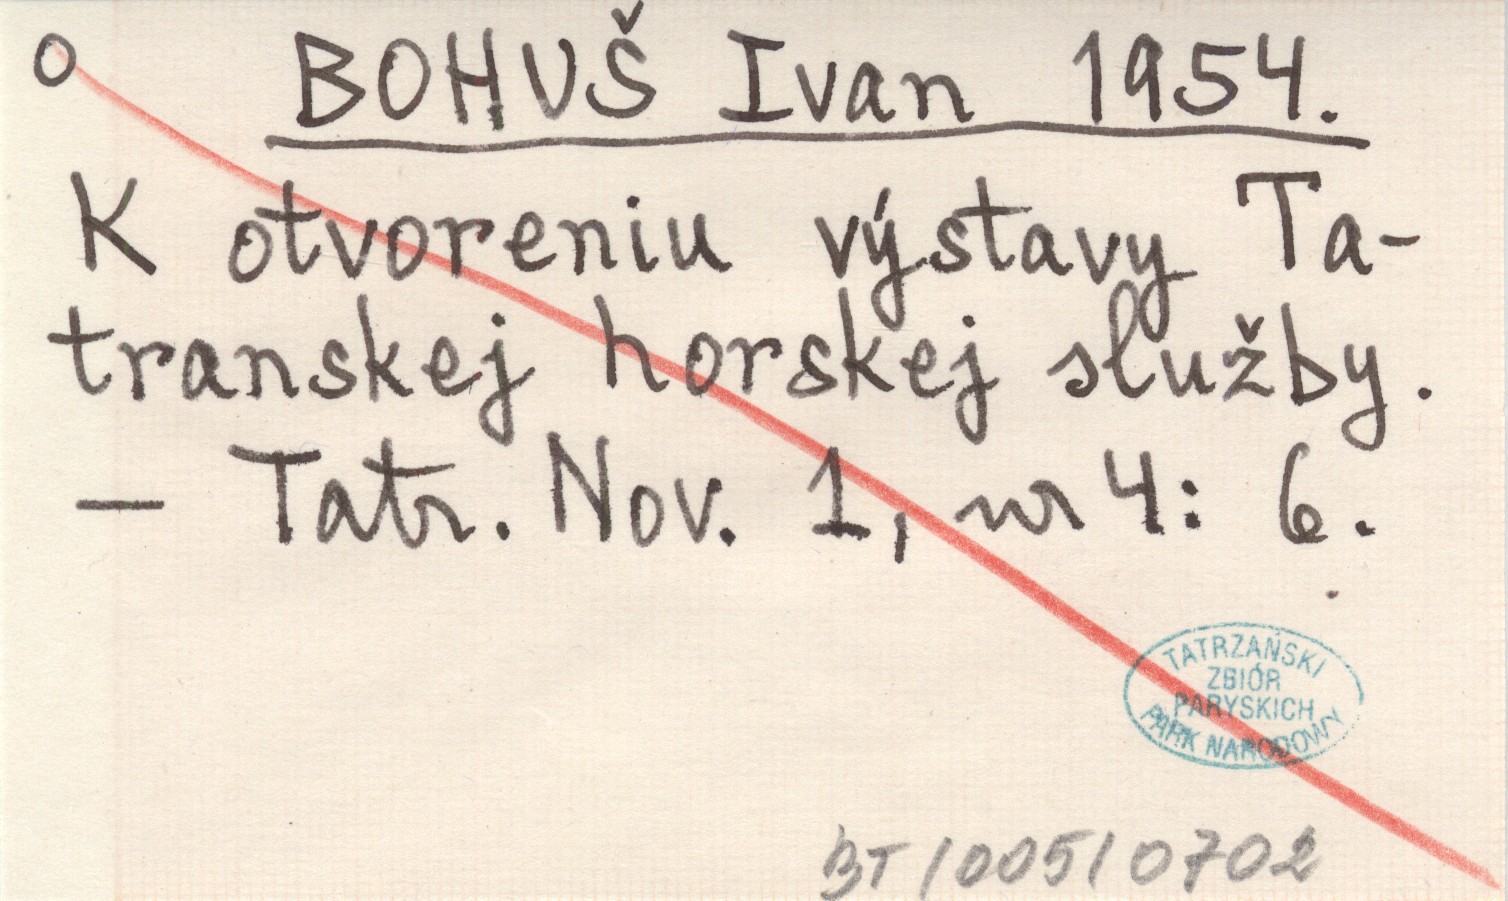 o BOHUŠ Ivan 1954.
K otvoreniu výstavy Ta-
transkej horskej služby.
— Tatr. Nov. 1, nr 4: 6.
TATRZAŃSKI
ZBIÓR
PARYSKICH
PARK NARODOWY
BT/005/0702